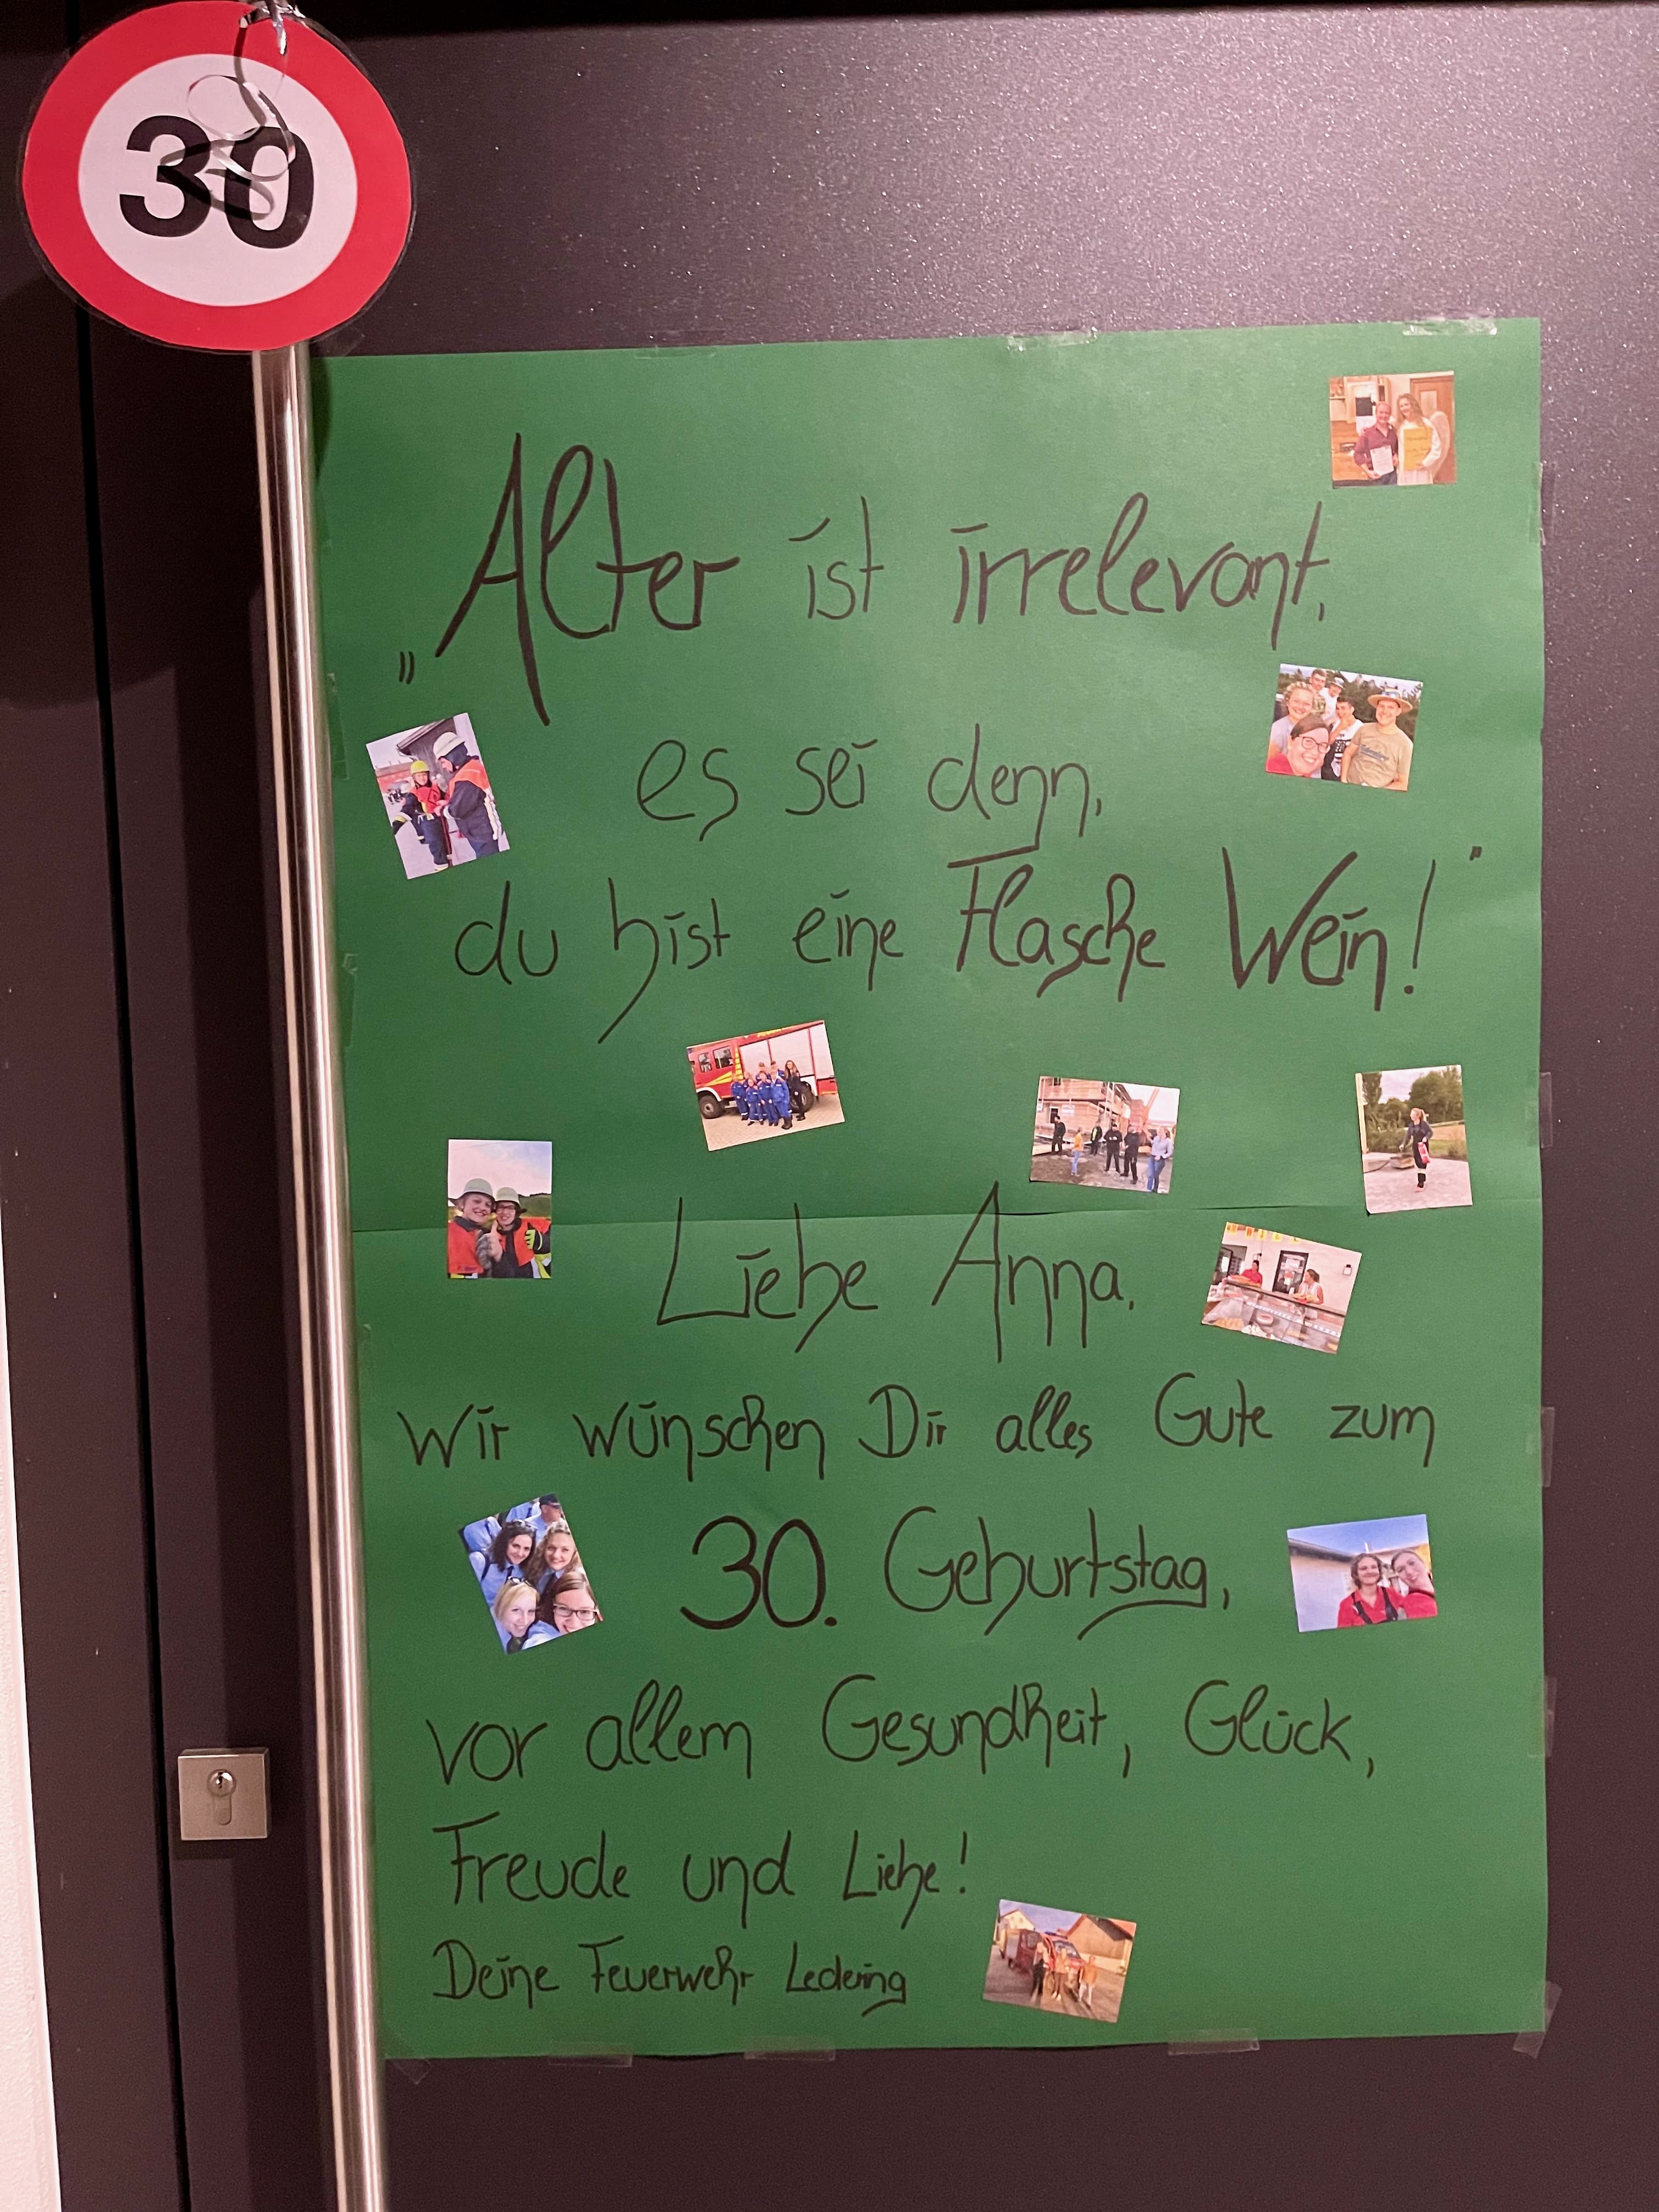 30
„Alter ist irrelevant,
es sei denn,
du bist eine Flasche Wein!"
Liebe Anna,
Wir wünschen Dir alles Gute zum
30. Geburtstag,
vor allem Gesundheit, Glück,
Freude und Liebe!
Deine Feuerwehr Ledering